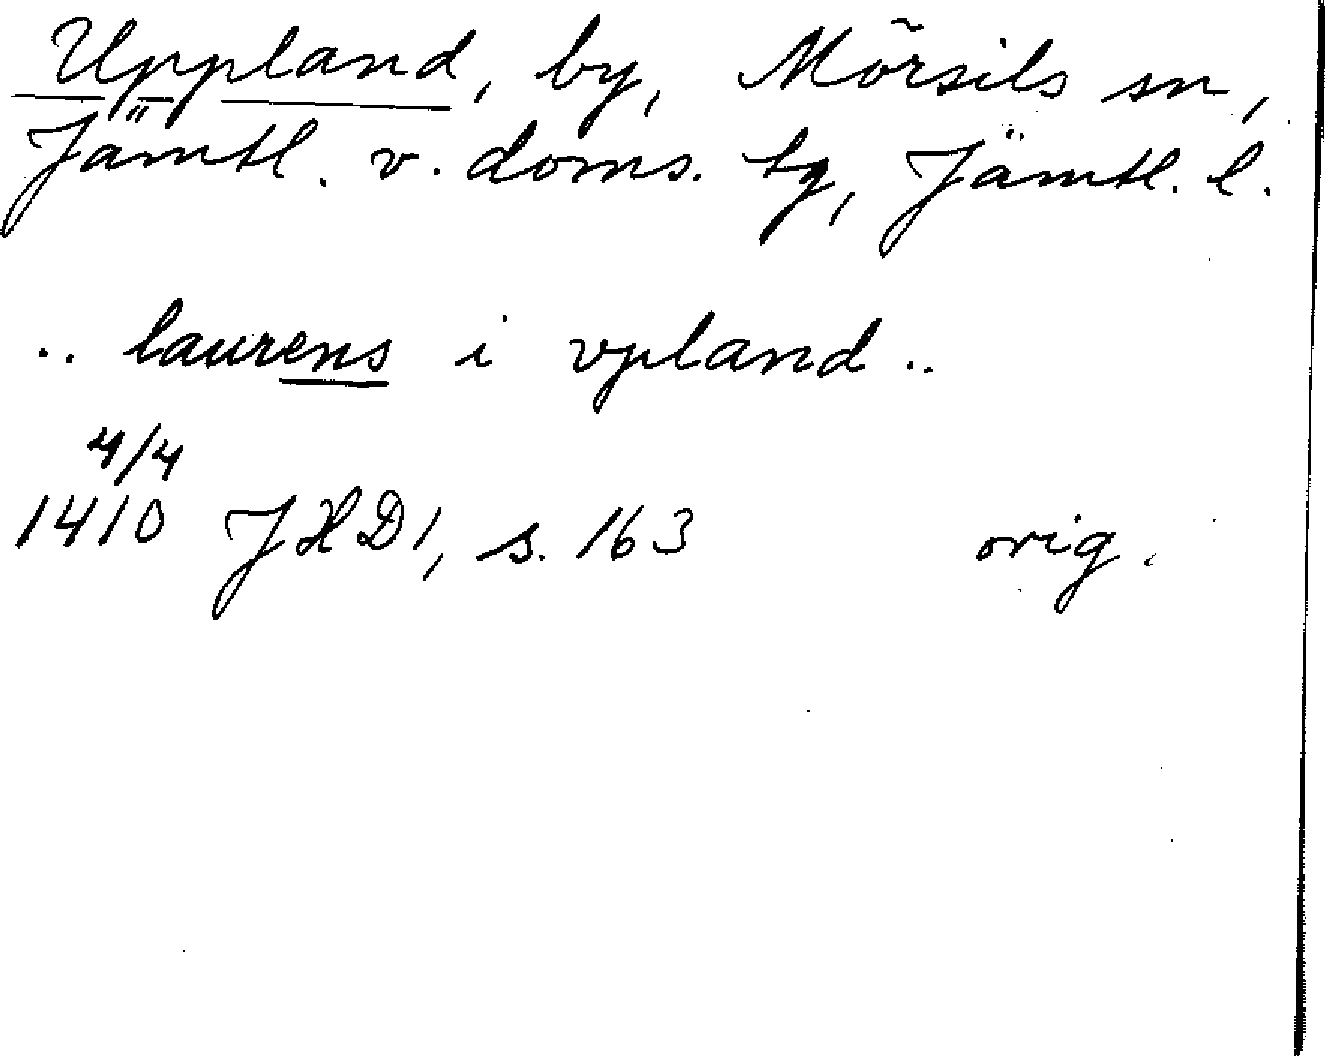 Uppland, by, Mörsils sn,
Jämtl. v. doms. tg, Jämtl. l.
.. laurens i vpland ..
4/4
1410 JHD1, s. 163 orig.